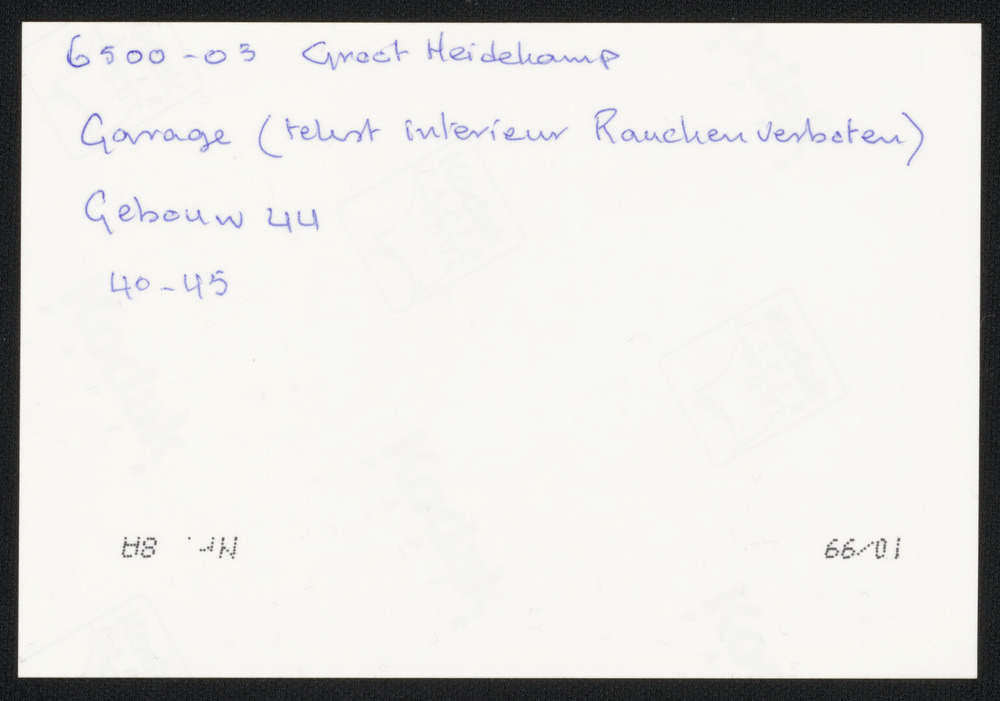 6500-03 Groot Heidekamp
Garage (tekst interieur Rauchen verboten)
Gebouw 44
40-45